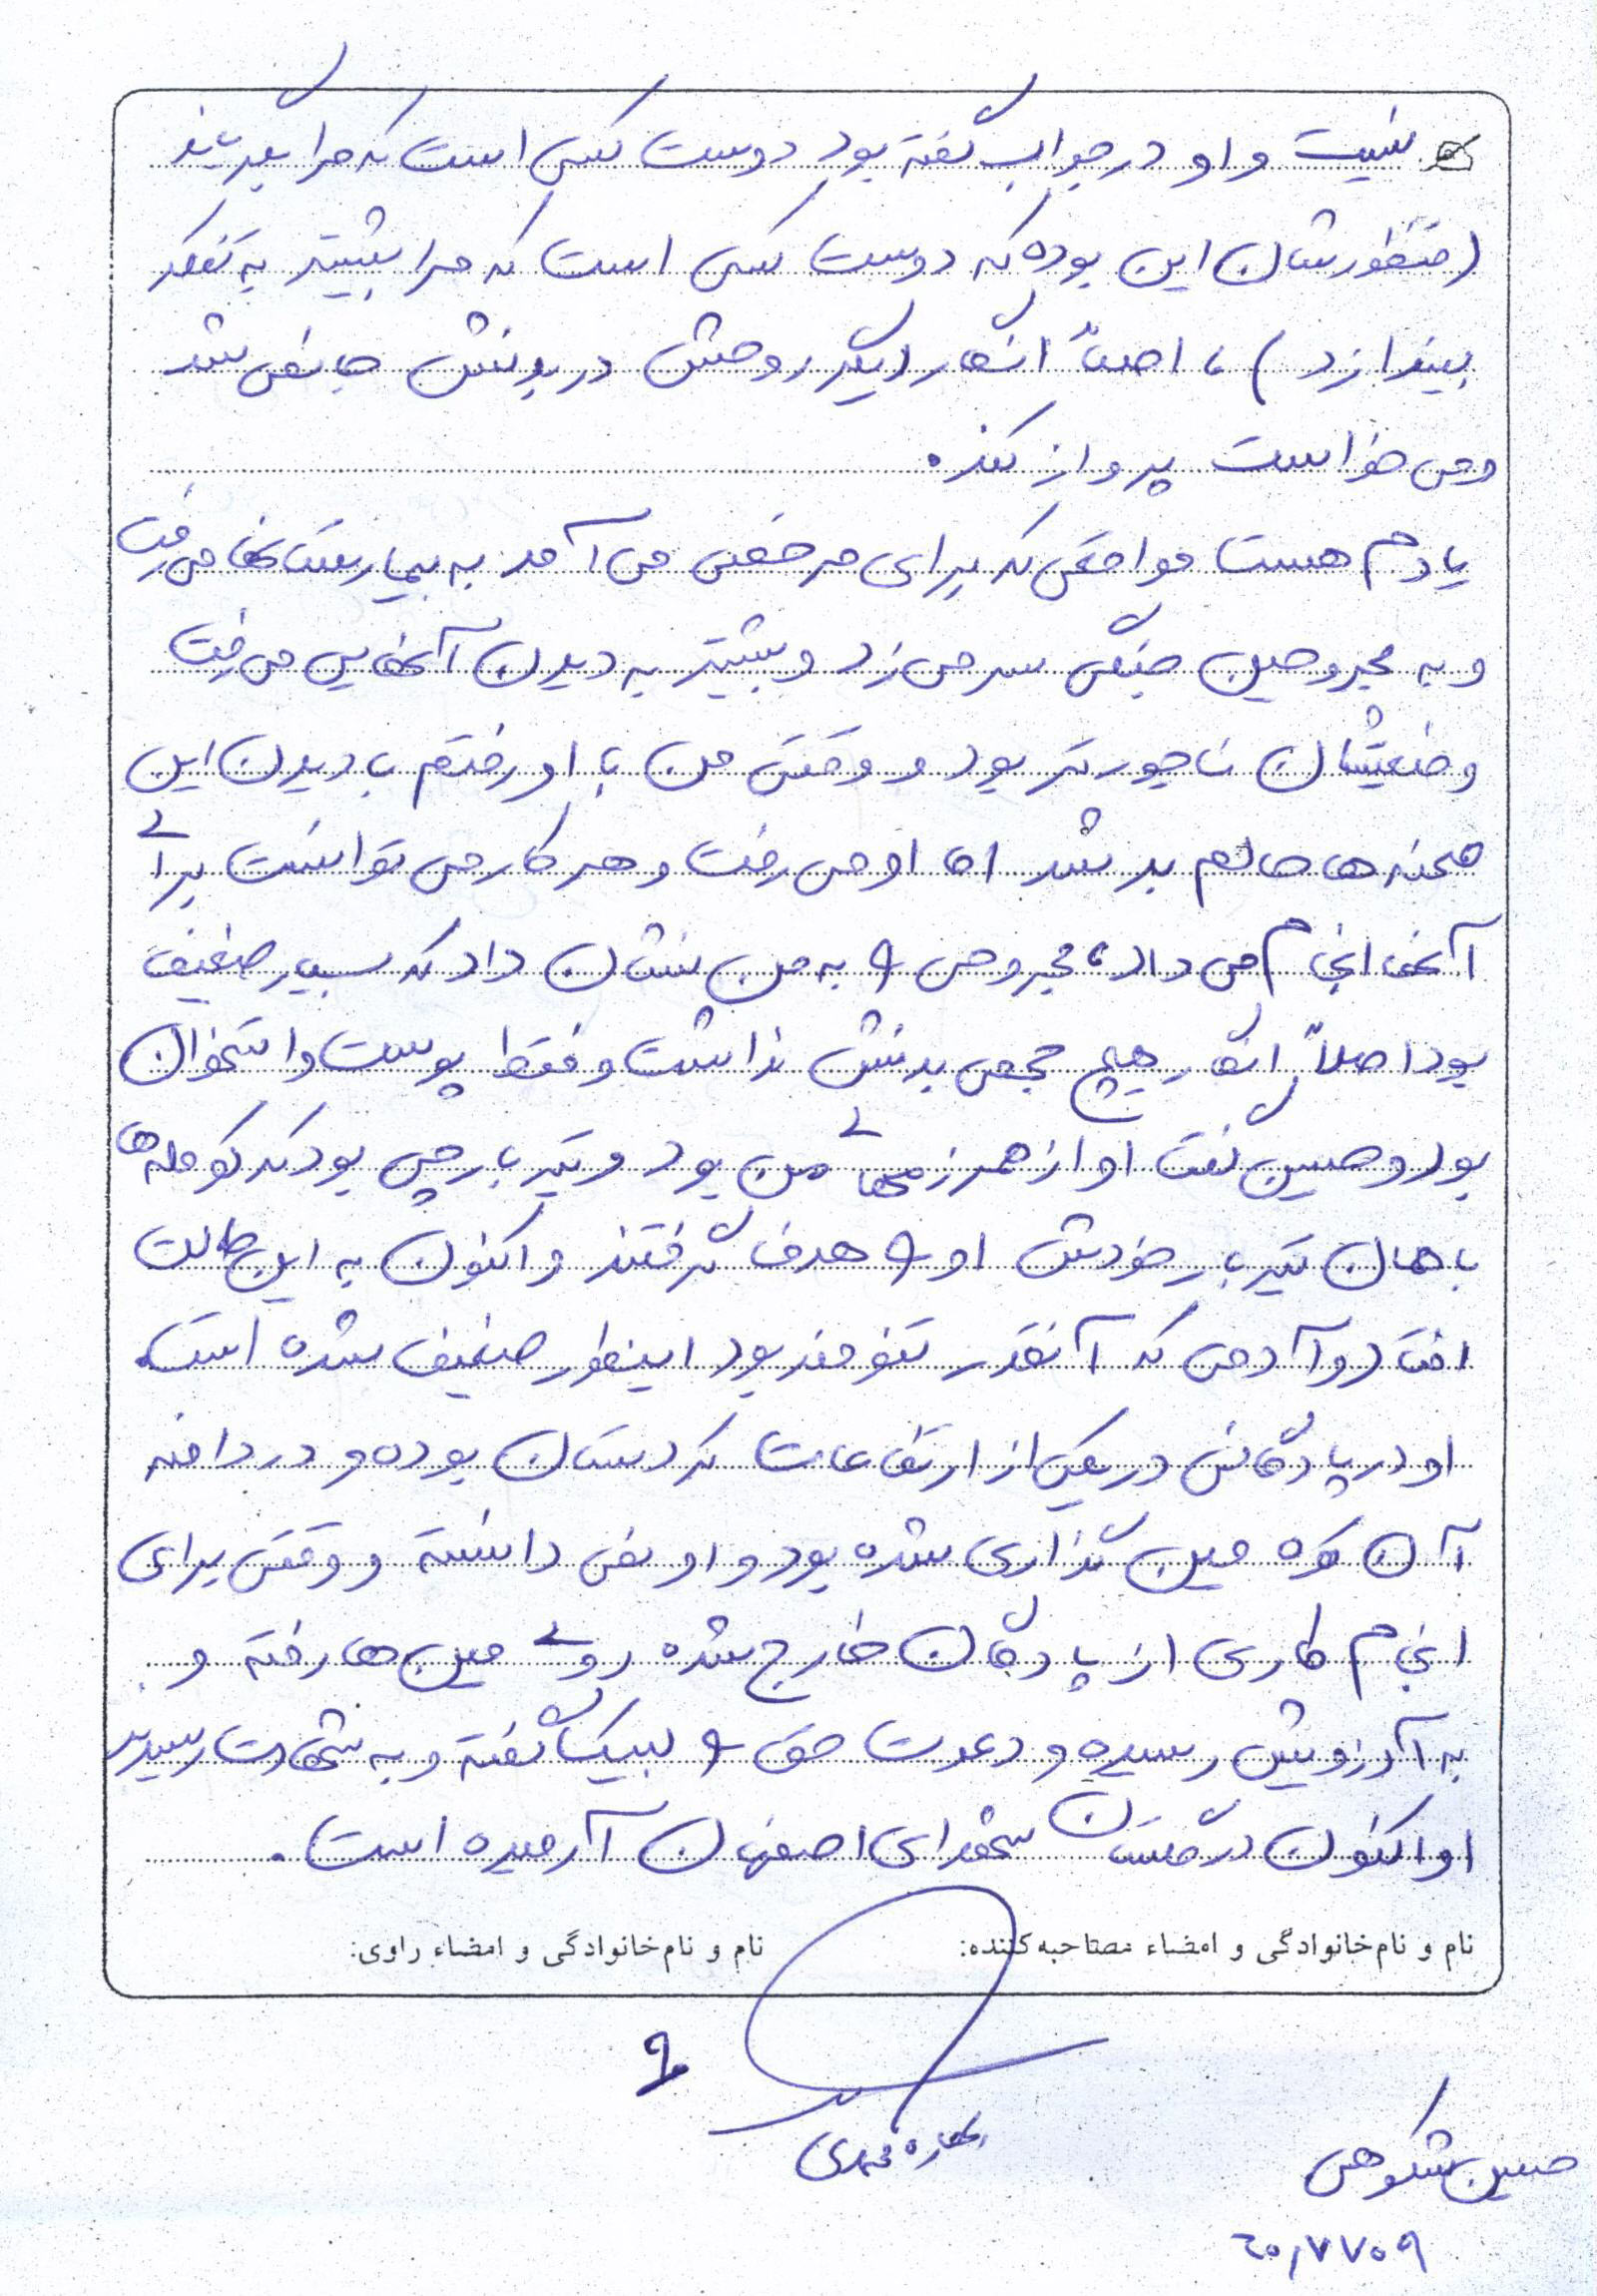 نیست و او در جواب گفته بود دوست کسی است که مرا بگریاند
(منظورشان این بوده که دوست کسی است که مرا بیشتر به تفکر
بیندازد)، اصلاً انگار دیگر روحش در بدنش جا نمی شد
و می خواست پرواز کند.
یادم هست مواقعی که برای مرخصی می آمد به بیمارستانها می رفت
و به مجروحین جنگی سر می زد و بیشتر به دیدن آنهایی می رفت
وضعیتشان ناجورتر بود و وقتی من با او رفتم با دیدن این
صحنه ها حالم بد شد اما او می رفت و هر کار می توانست برای
آنها انجام می داد، مجروحی را به من نشان داد که بسیار ضعیف
بود اصلاً انگار هیچ حجمی بدنش نداشت و فقط پوست و استخوان
بود و حسین گفت او از همرزمهای من بود و تیربارچی بود که کومله ها
با همان تیربار خودش او را هدف گرفتند و اکنون به این حالت
افتاد و آدمی که آنقدر تنومند بود اینطور ضعیف شده است.
او در پادگانی در یکی از ارتفاعات کردستان بوده و در دامنه
آن کوه مین گذاری شده بود و او نمی دانسته و وقتی برای
انجام کاری از پادگان خارج شده روی مین ها رفته و
به آرزویش رسیده و دعوت حق را لبیک گفته و به شهادت رسید
او اکنون در گلستان شهدای اصفهان آرمیده است.
نام و نام خانوادگی و امضاء مصاحبه کننده:
نام و نام خانوادگی و امضاء راوی:
۹
محمدی
حسین شکوهی
۶۰۸۷۷۰۹